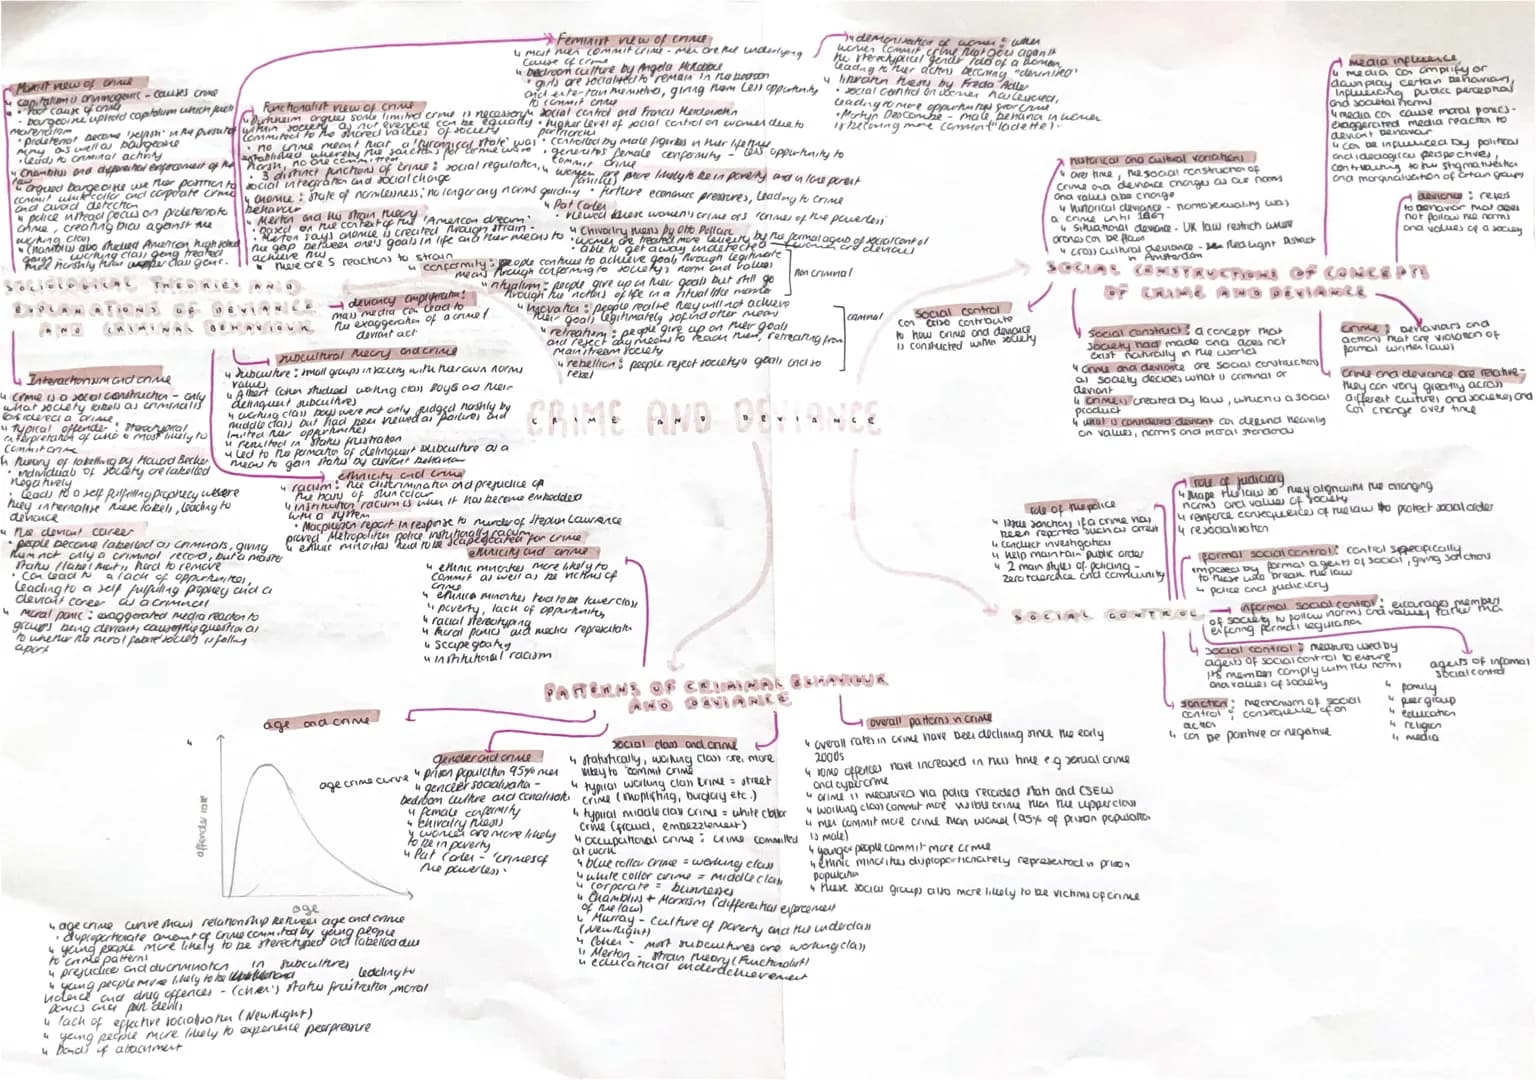 CRIME AND DEVIANCE
SOCIOLOGICAL THEORIES AND
EXPLANATIONS OF DEVIANCE
AND CRIMINAL BEHAVIOUR
Marxist view of crime
capitalism is criminogenic - causes crime
• root cause of crime
• bourgeoisie uphold capitalism which fuels
materialism
• proletariat become 'selfish' in the pursuit of
money as well as bourgeoisie
• leads to criminal activity
Chambliss and differential enforcement of the
law
• argued bourgeoisie use their position to
commit white collar and corporate crime
and avoid detection
• police instead focus on proletariate
crime, creating bias against the
working class
• Chambliss also studied American high school
gangs - working class gang treated
more harshly than upper class gang.
Functionalist view of crime
Durkheim argues some limited crime is necessary
within society as not everyone can be equally
committed to the shared values of society
• no crime meant that a 'tyrannical state' was
established whereby the sanctions for crime were
harsh, no one committed
• 3 distinct functions of crime: social regulation,
social integration and social change
anomie: state of normlessness; no longer any norms guiding
behaviour
Merton and his strain theory
• based on the context of the 'American dream'
• Merton says anomie is created through strain -
the gap between one's goals in life and their means to
achieve this
• there are 5 reactions to strain
conformity: people continue to achieve goals through legitimate
means through conforming to society's norm and values
ritualism: people give up on their goals but still go
through the motions of life in a ritual like manner
non criminal
innovation: people realise they will not achieve
their goals legitimately so find other means
retreatism: people give up on their goals
and reject any means to reach them, retreating from
mainstream society
rebellion: people reject society's goals and so
rebel
criminal
Feminist view of crime
most men commit crime - men are the underlying
cause of crime
bedroom culture by Angela McRobbie
• girls are socialised to remain in the bedroom
and entertain themselves, giving them less opportunity
to commit crime
social control and Francis Heidensohn
• higher level of social control on women due to
patriarchy
• controlled by male figures in their lifetime
• generates female conformity - less opportunity to
commit crime
women are more likely to be in poverty and in lone parent
families
• further economic pressures, leading to crime
Pat Carlen
• viewed these women's crime as 'crimes of the powerless'
Chivalry thesis by Otto Pollak
• women are treated more leniently by the formal agents of social control
• able to get away undetected
women and devious
demonisation of women: when
women commit crime that goes against
the stereotypical gender idea of a woman,
leading to their actions becoming "demonised"
liberation thesis by Freda Adler
• social control on women has lessened,
leading to more opportunities for crime
• Martyn Denscombe - male behaviour in women
is becoming more common "ladette".
deviancy amplification:
mass media can lead to
the exaggeration of a crime/
deviant act
subcultural theory and crime
subculture: small groups in society with their own norms
values
Albert Cohen studied working class boys and their
delinquent subcultures
working class boys were not only judged harshly by
middle class but had been viewed as failures and
limited their opportunities
resulted in status frustration
Led to the formation of delinquent subculture as a
means to gain status by deviant behaviour
ethnicity and crime
racism: the discrimination and prejudice on
the basis of skin colour
institutional racism is when it has become embedded
with a system
• Macpherson report in response to murder of Stephen Lawrence
proved Metropolitan police institutionally racism
ethnic minorites tend to be scapegoated for crime
Interactionism and crime
crime is a social construction - only
what society labels as criminal is
considered a crime
typical offender: stereotypical
interpretation of who is most likely to
commit crime
theory of labelling by Howard Becker
• individuals of society are labelled
negatively
• leads to a self fulfilling prophecy where
they internalise these labels, leading to
deviance
the deviant career
• people become labelled as criminals, giving
them not only a criminal record, but a master
status/label that is hard to remove
• can lead to a lack of opportunities,
leading to a self fulfilling prophecy and a
deviant career as a criminal
Moral panic: exaggerated media reaction to
groups being deviant, causing the question as
to whether the moral fabric society is falling
apart
ethnicity and crime
ethnic minorites more likely to
commit as well as be victims of
crime
ethnic minorites tend to be lower class
poverty, lack of opportunity
racial stereotyping
Moral panics and media representation
scapegoating
institutional racism
PATTERNS OF CRIMINAL BEHAVIOUR
AND DEVIANCE
age and crime
age crime curve
offender rate
age
age crime curve shows relationship between age and crime
• disproportionate amount of crime committed by young people
young people more likely to be stereotyped and labelled due
to crime patterns
prejudice and discrimination
young people more likely to be in subcultures leading to
violence and drug offences - (Cohen's) status frustration, moral
panics and folk devils
lack of effective socialisation (New Right)
young people more likely to experience peer pressure
bonds of attachment
gender and crime
prison population 95% men
gender socialisation -
bedroom culture and canalisation
female conformity
chivalry thesis
women are more likely
to be in poverty
Pat Carlen - 'crimes of
the powerless'
social class and crime
statistically, working class are more
likely to commit crime
typical working class crime = street
crime (shoplifting, burglary etc.)
typical middle class crime = white collar
crime (fraud, embezzlement)
occupational crime: crime committed
at work
blue collar crime = working class
white collar crime = middle class
corporate = businesses
Chambliss + Marxism (differential enforcement
of the law)
Murray - culture of poverty and the underclass
(New Right)
Cohen - most subcultures are working class
Merton - strain theory (Functionalist)
educational underachievement
overall patterns in crime
overall rates in crime have been declining since the early
2000s
some offences have increased in this time e.g sexual crime
and cybercrime
crime is measured via police recorded stats and CSEW
working class commit more visible crime than the upper class
men commit more crime than women (95% of prison population
is male)
younger people commit more crime
ethnic minorities disproportionately represented in prison
population
these social groups also more likely to be victims of crime
SOCIAL CONSTRUCTIONS OF CONCEPTS
OF CRIME AND DEVIANCE
historical and cultural variations
over time, the social construction of
crime and deviance changes as our norms
and values also change
historical deviance - homosexuality was
a crime until 1967
Situational deviance - UK law restrict where
drones can be flown
cross cultural deviance - Red Light District
in Amsterdam
media influence
media can amplify or
downplay certain behaviours,
influencing public perception
and societal norms
media can cause moral panics -
exaggerated media reaction to
deviant behaviour
can be influenced by political
and ideological perspectives,
contributing to the stigmatisation
and marginalisation of certain groups
deviance: refers
to behaviour that does
not follow the norms
and values of a society
Social control
can also contribute
to how crime and deviance
is constructed within society
Social construct: a concept that
society had made and does not
exist naturally in the world
Crime and deviance are social constructions
as society decides what is criminal or
deviant
crime is created by law, which is a social
product
what is considered deviant can depend heavily
on values, norms and moral standards
Crime: behaviours and
actions that are violation of
formal written laws
crime and deviance are relative -
they can vary greatly across
different cultures and societies and
can change over time
SOCIAL CONTROL
role of the police
issue sanctions if a crime has
been reported such as arrest
conduct investigations
help maintain public order
2 main styles of policing -
zero tolerance and community
role of judiciary
shape the law so they align with the changing
norms and values of society
reinforce consequences of the law to protect social order
resocialisation
formal social control: control specifically
imposed by formal agents of social, giving sanctions
to those who break the law
police and judiciary
informal social control: encourages members
of society to follow norms and values rather than
enforcing formal regulation
social control: measures used by
agents of social control to ensure
its member comply with the norms
and values of society
agents of informal
social control
family
peer group
education
religion
media
sanction: mechanism of social
control; consequence of an
action
can be positive or negative